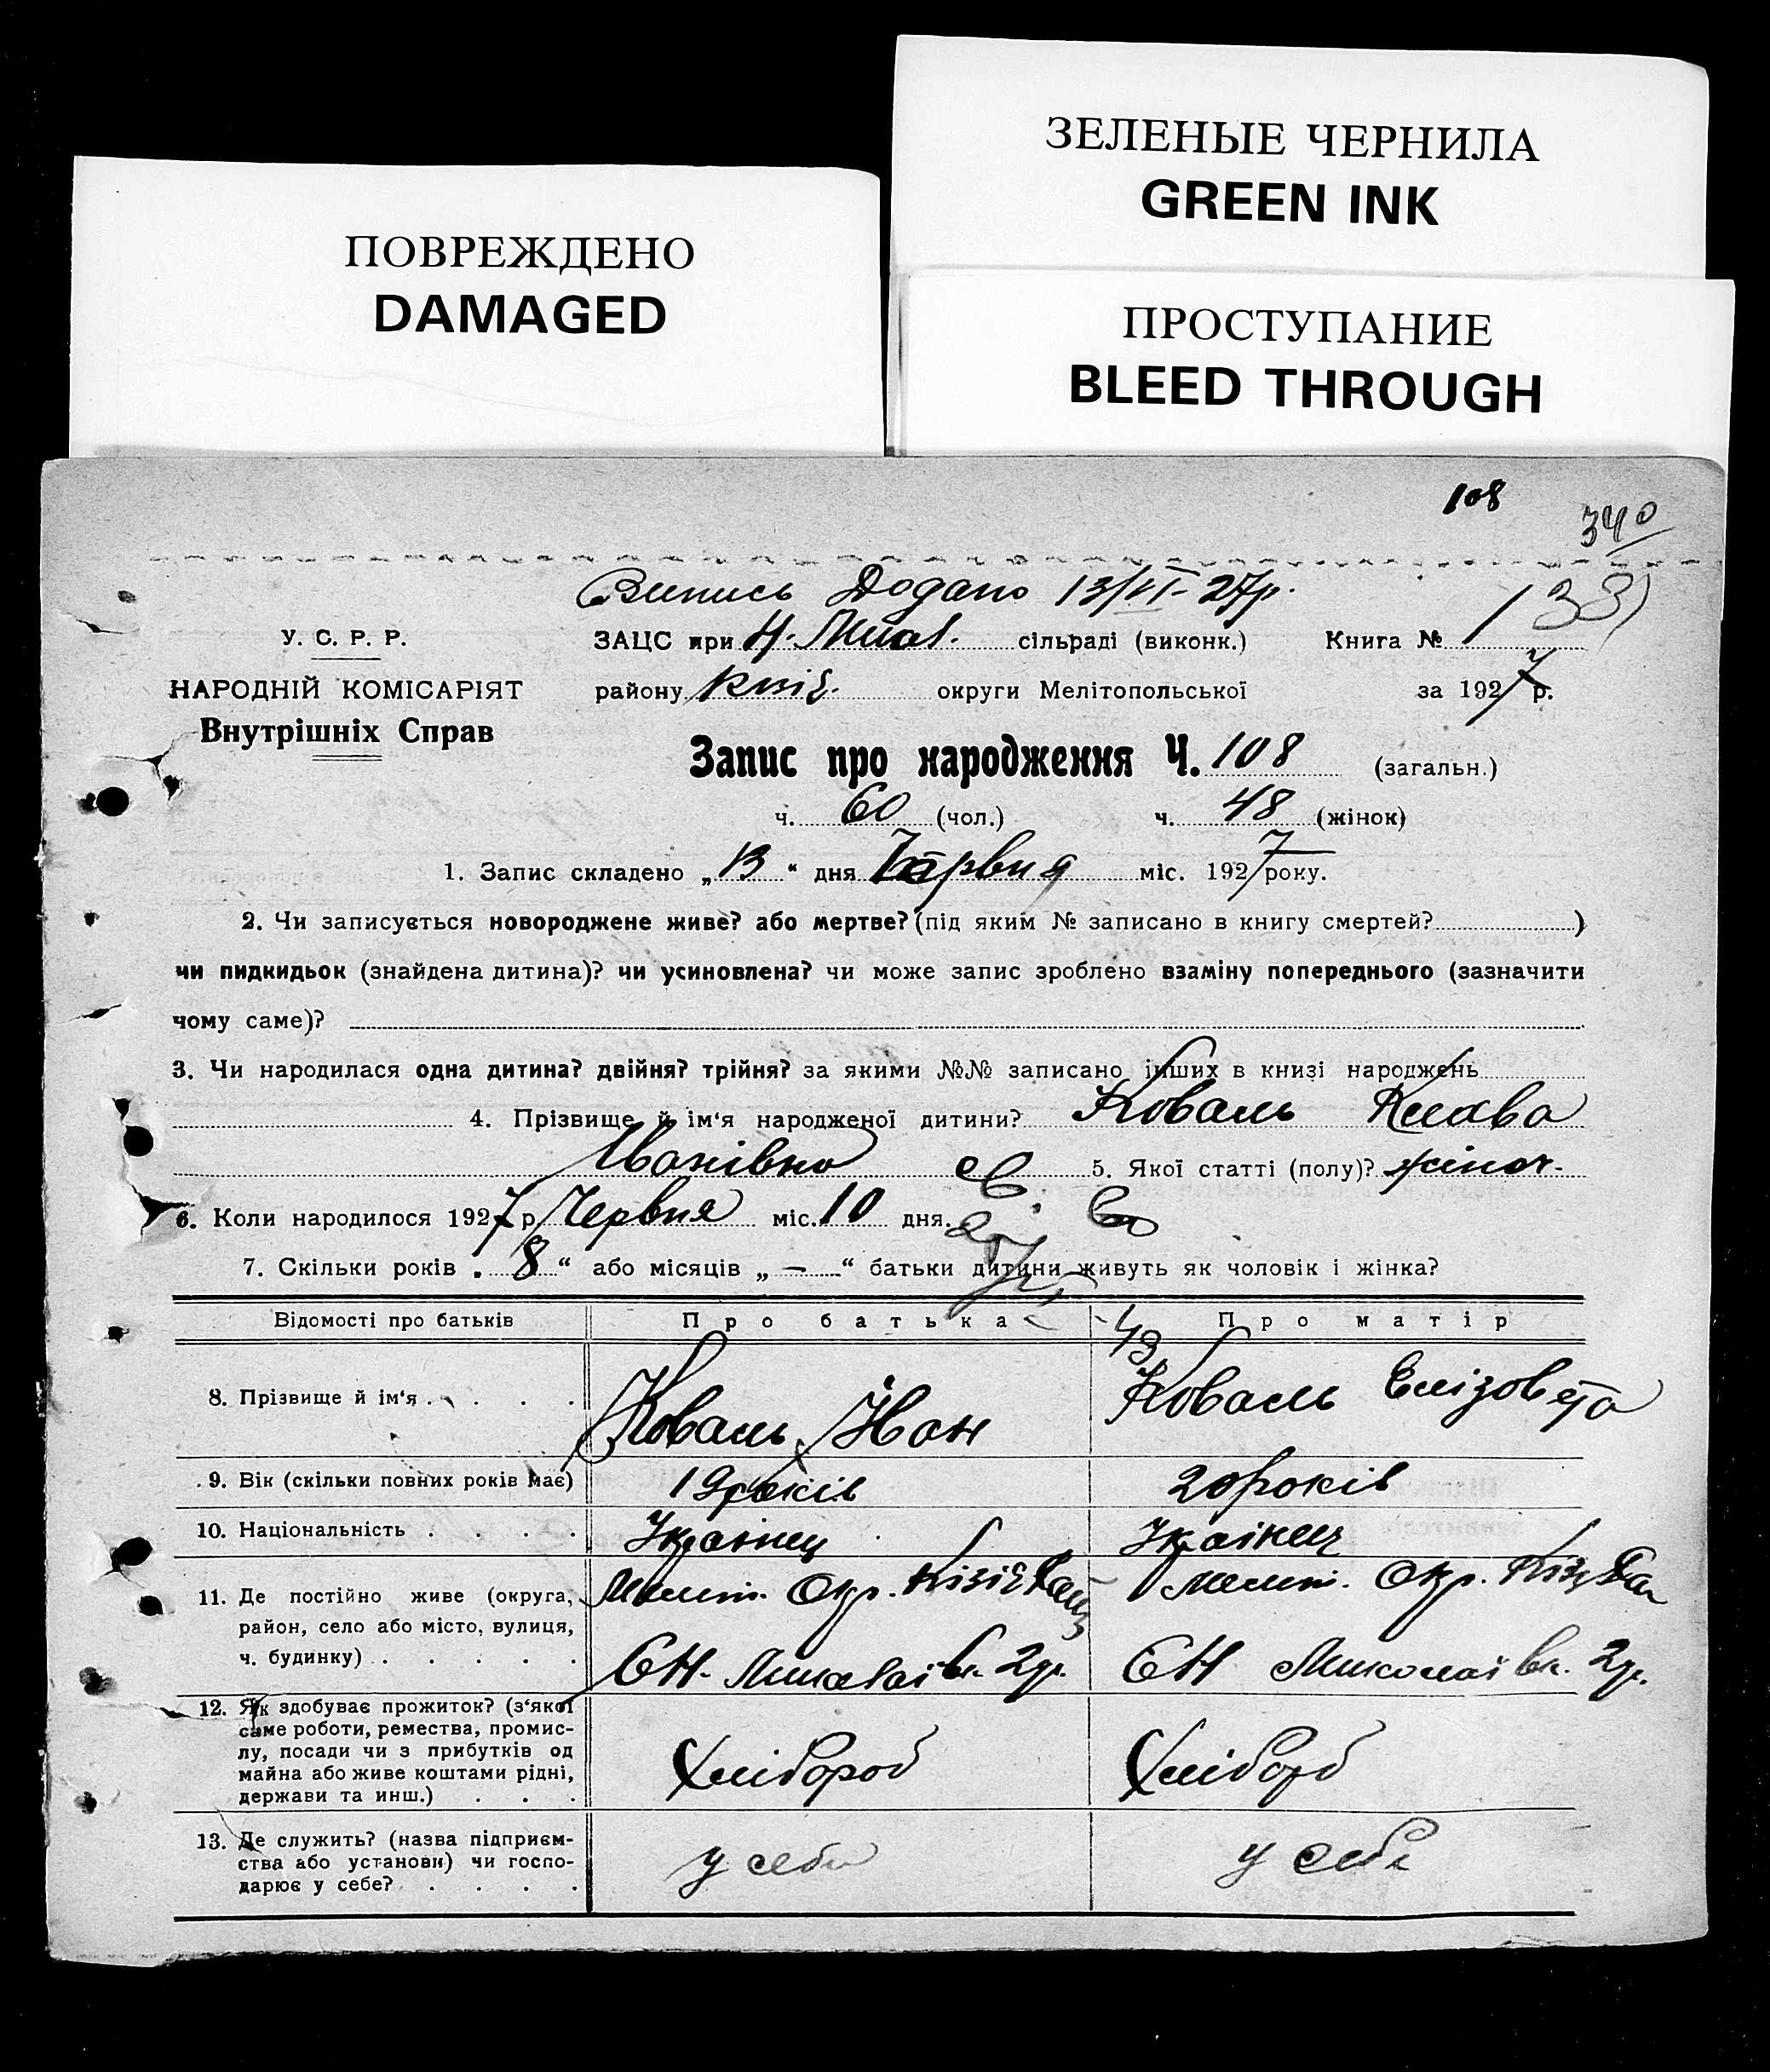 ЗЕЛЕНЫЕ ЧЕРНИЛА
GREEN INK
ПОВРЕЖДЕНО
DAMAGED
ПРОСТУПАНИЕ
BLEED THROUGH
108
340
Випись Додано 13/VI-27р.
133)
У. С. Р. Р.
ЗАЦС при Н. Микол. сільраді (виконк.) Книга № 1
НАРОДНІЙ КОМІСАРІЯТ
району округи Мелітопольської за 1927 р.
Внутрішніх Справ
Запис про народження Ч. 108 (загальн.)
ч. 60 (чол.) ч. 48 (жінок)
1. Запис складено „13“ дня Червня міс. 1927 року.
2. Чи записується новороджене живе? або мертве? (під яким № записано в книгу смертей? )
чи пидкидьок (знайдена дитина)? чи усиновлена? чи може запис зроблено взаміну попереднього (зазначити
чому саме)?
3. Чи народилася одна дитина? двійня? трійня? за якими №№ записано інших в книзі народжень
4. Прізвище й ім‘я народженої дитини? Коваль Клава
Іванівна 5. Якої статті (полу)? жіноч.
6. Коли народилося 1927 р. Червня міс. 10 дня.
7. Скільки років „8“ або місяців „—“ батьки дитини живуть як чоловік і жінка?
Відомості про батьків Про батька Про матір
8. Прізвище й ім‘я . . . . . Коваль Іван Коваль Елізовета
9. Вік (скільки повних років має) 19 років 20 років
10. Національність . . . . Украінец Украінец
11. Де постійно живе (округа, район, село або місто, вулиця, ч. будинку) . . . . . Меліт. Окр. Меліт. Окр.
СН. Миколаівк. 2гр. СН Миколаівк. 2гр.
12. Як здобуває прожиток? (з‘якої
саме роботи, ремества, промис-
лу, посади чи з прибутків од
майна або живе коштами рідні,
держави та инш.) . . . Хлібороб Хлібороб
13. Де служить? (назва підприєм-
ства або установи) чи госпо-
дарює у себе? . . . . у себе у себе